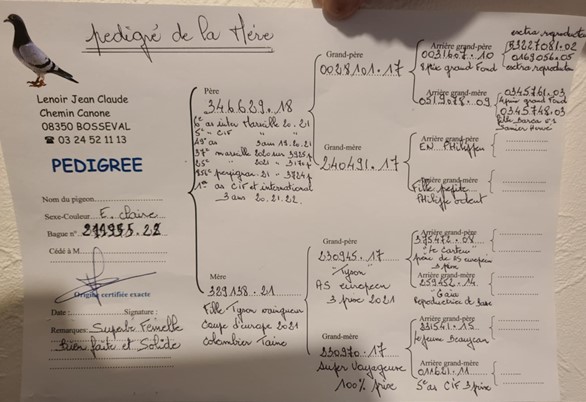 pedigré de la Mère
Lenoir Jean Claude
Chemin Canone
08350 BOSSEVAL
☎ 03 24 52 11 13
PEDIGREE
Nom du pigeon
Sexe-Couleur E. claire
Bague n°
Cédé à M
Origine certifiée exacte
Date : Signature :
Remarques: Superbe Femelle
bien faite et Solide
Père
346629.18
6e as inter Marseille 20.21
5e " CIF
19e as 3 ans 19.20.21
37e marseille 2020 sur 3925 p
25e " 2021 " 3170 p
256e perpignan 21 " 3784 p
1er as CIF et international
3 ans 20.21.22
Mère
329138.21
Fille Tyson vainqueur
Coupe d'europe 2021
Colombier Taine
Grand-père
0028101.17
Grand-mère
240491.17
Grand-père
230945.17
"Tyson"
AS européen
3 prix 2021
Grand-mère
230970.17
Super Voyageuse
100% prix
Arrière grand-père
0031607.10
Epix grand Fond
Arrière grand-mère
0519078.09
Arrière grand-père
EN PHilippen
Arrière grand-mère
Fille pepite
PHilippe odent
Arrière grand-père
375472.08
"le Carteux"
Arrière grand-mère
259452.14
"Gaïa"
Reproductrice de base
Arrière grand-père
231541.15
Lejeune Beaujean
Arrière grand-mère
011621.11
5e as CIF 3 prix
extra reproducteur
0169056.05
extra reproduction
0345761.03
grand Fond
0345748.03